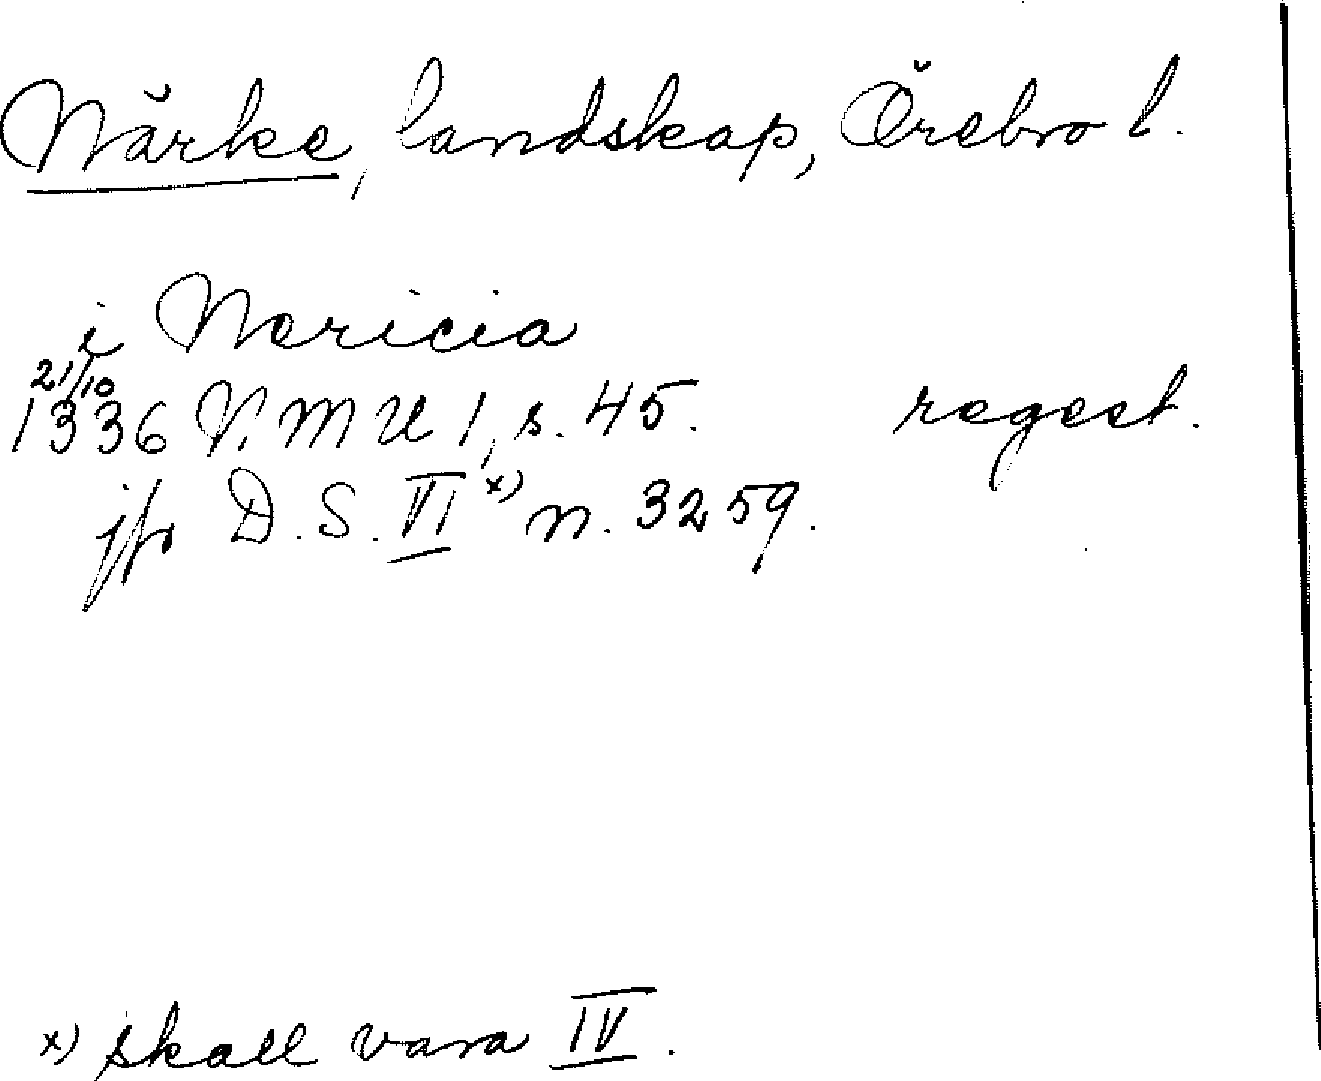 Närke, landskap, Örebro l.
i Nericia
21/10
1336 V.M U 1, s. 45. regest.
jfr D.S. VI x) n. 3259.
x) skall vara IV.